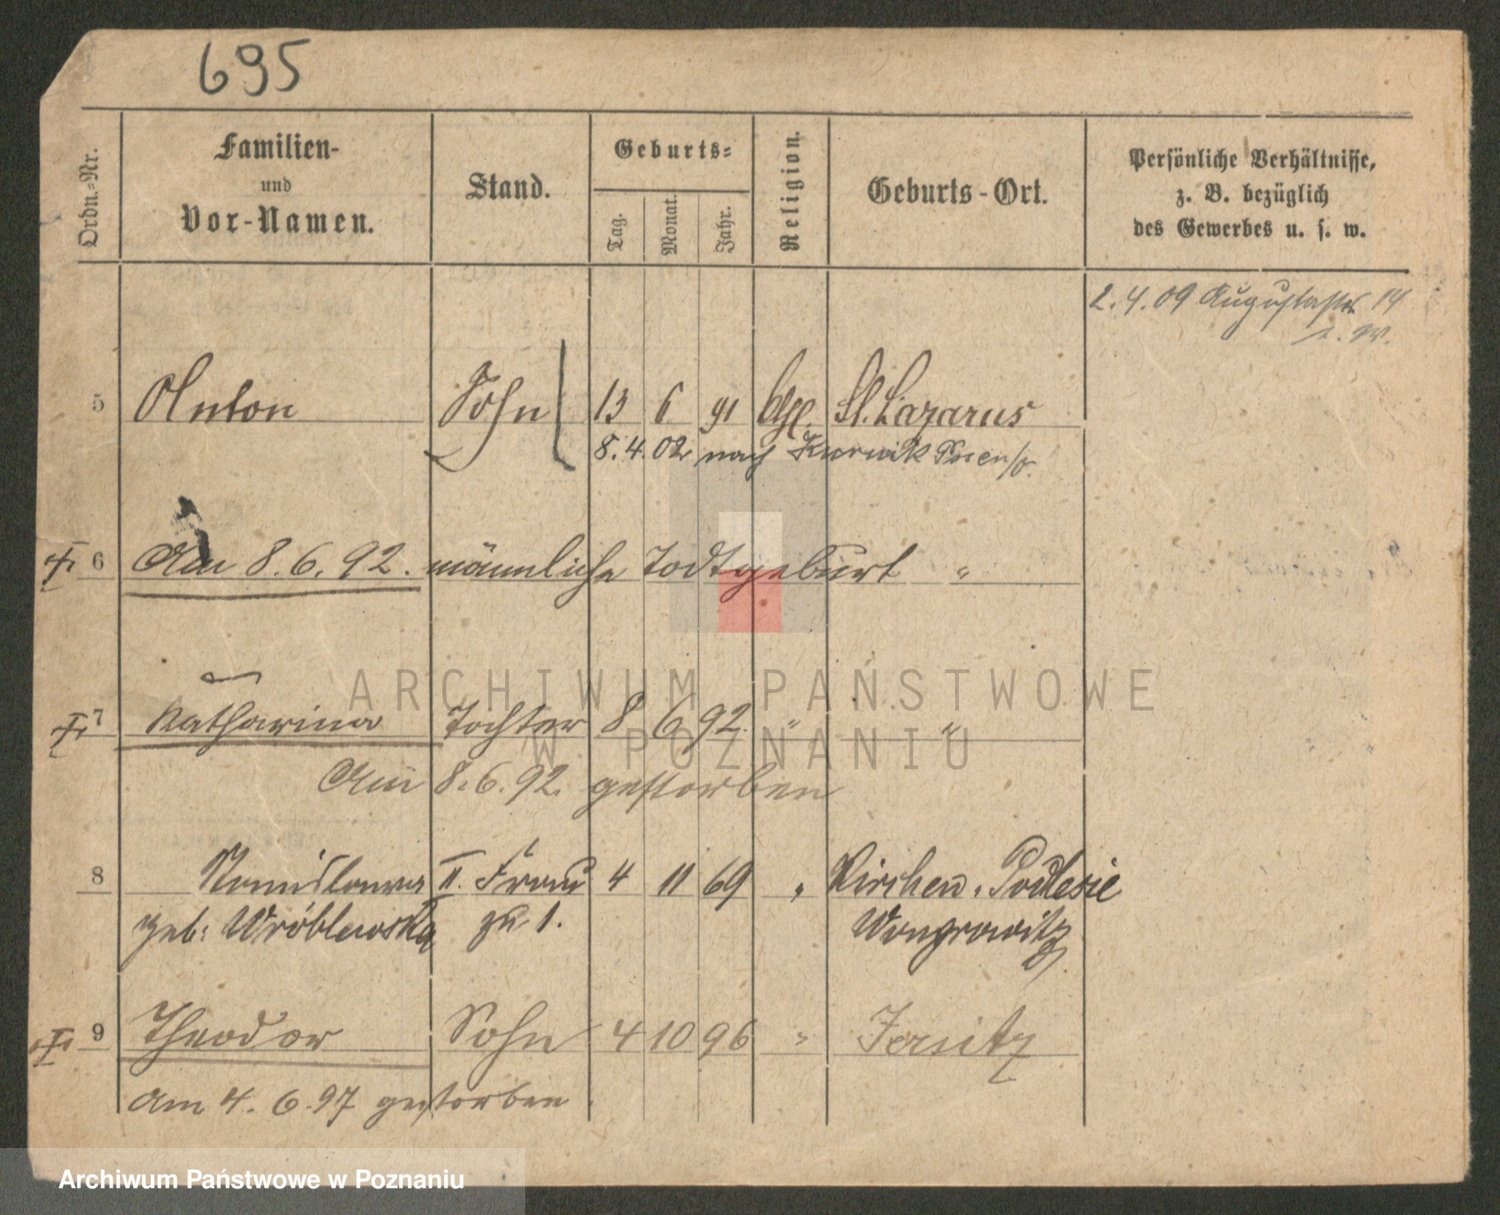 695
Ordn.-Nr.
Familien-
und
Vor-Namen.
Stand.
Geburts-
Tag.
Monat.
Jahr.
Religion.
Geburts-Ort.
Persönliche Verhältnisse,
z. B. bezüglich
des Gewerbes u. s. w.
2.4.09 Augustastr. 14
5 Anton Sohn 13 6 91 St. Lazarus
8.4.02 nach Kurnik
6 Am 8.6.92. männliche Todtgeburt "
7 Katharina Tochter 8 6 92 " "
Am 8.6.92 gestorben
8 Stanislawa II. Frau 4 11 69 " Kirchen-Podlesie
geb: Wróblewska zu 1. Wongrowitz
9 Theodor Sohn 4 10 96 " Jersitz
Am 4.6.97 gestorben
ARCHIWUM PAŃSTWOWE
W POZNANIU
Archiwum Państwowe w Poznaniu